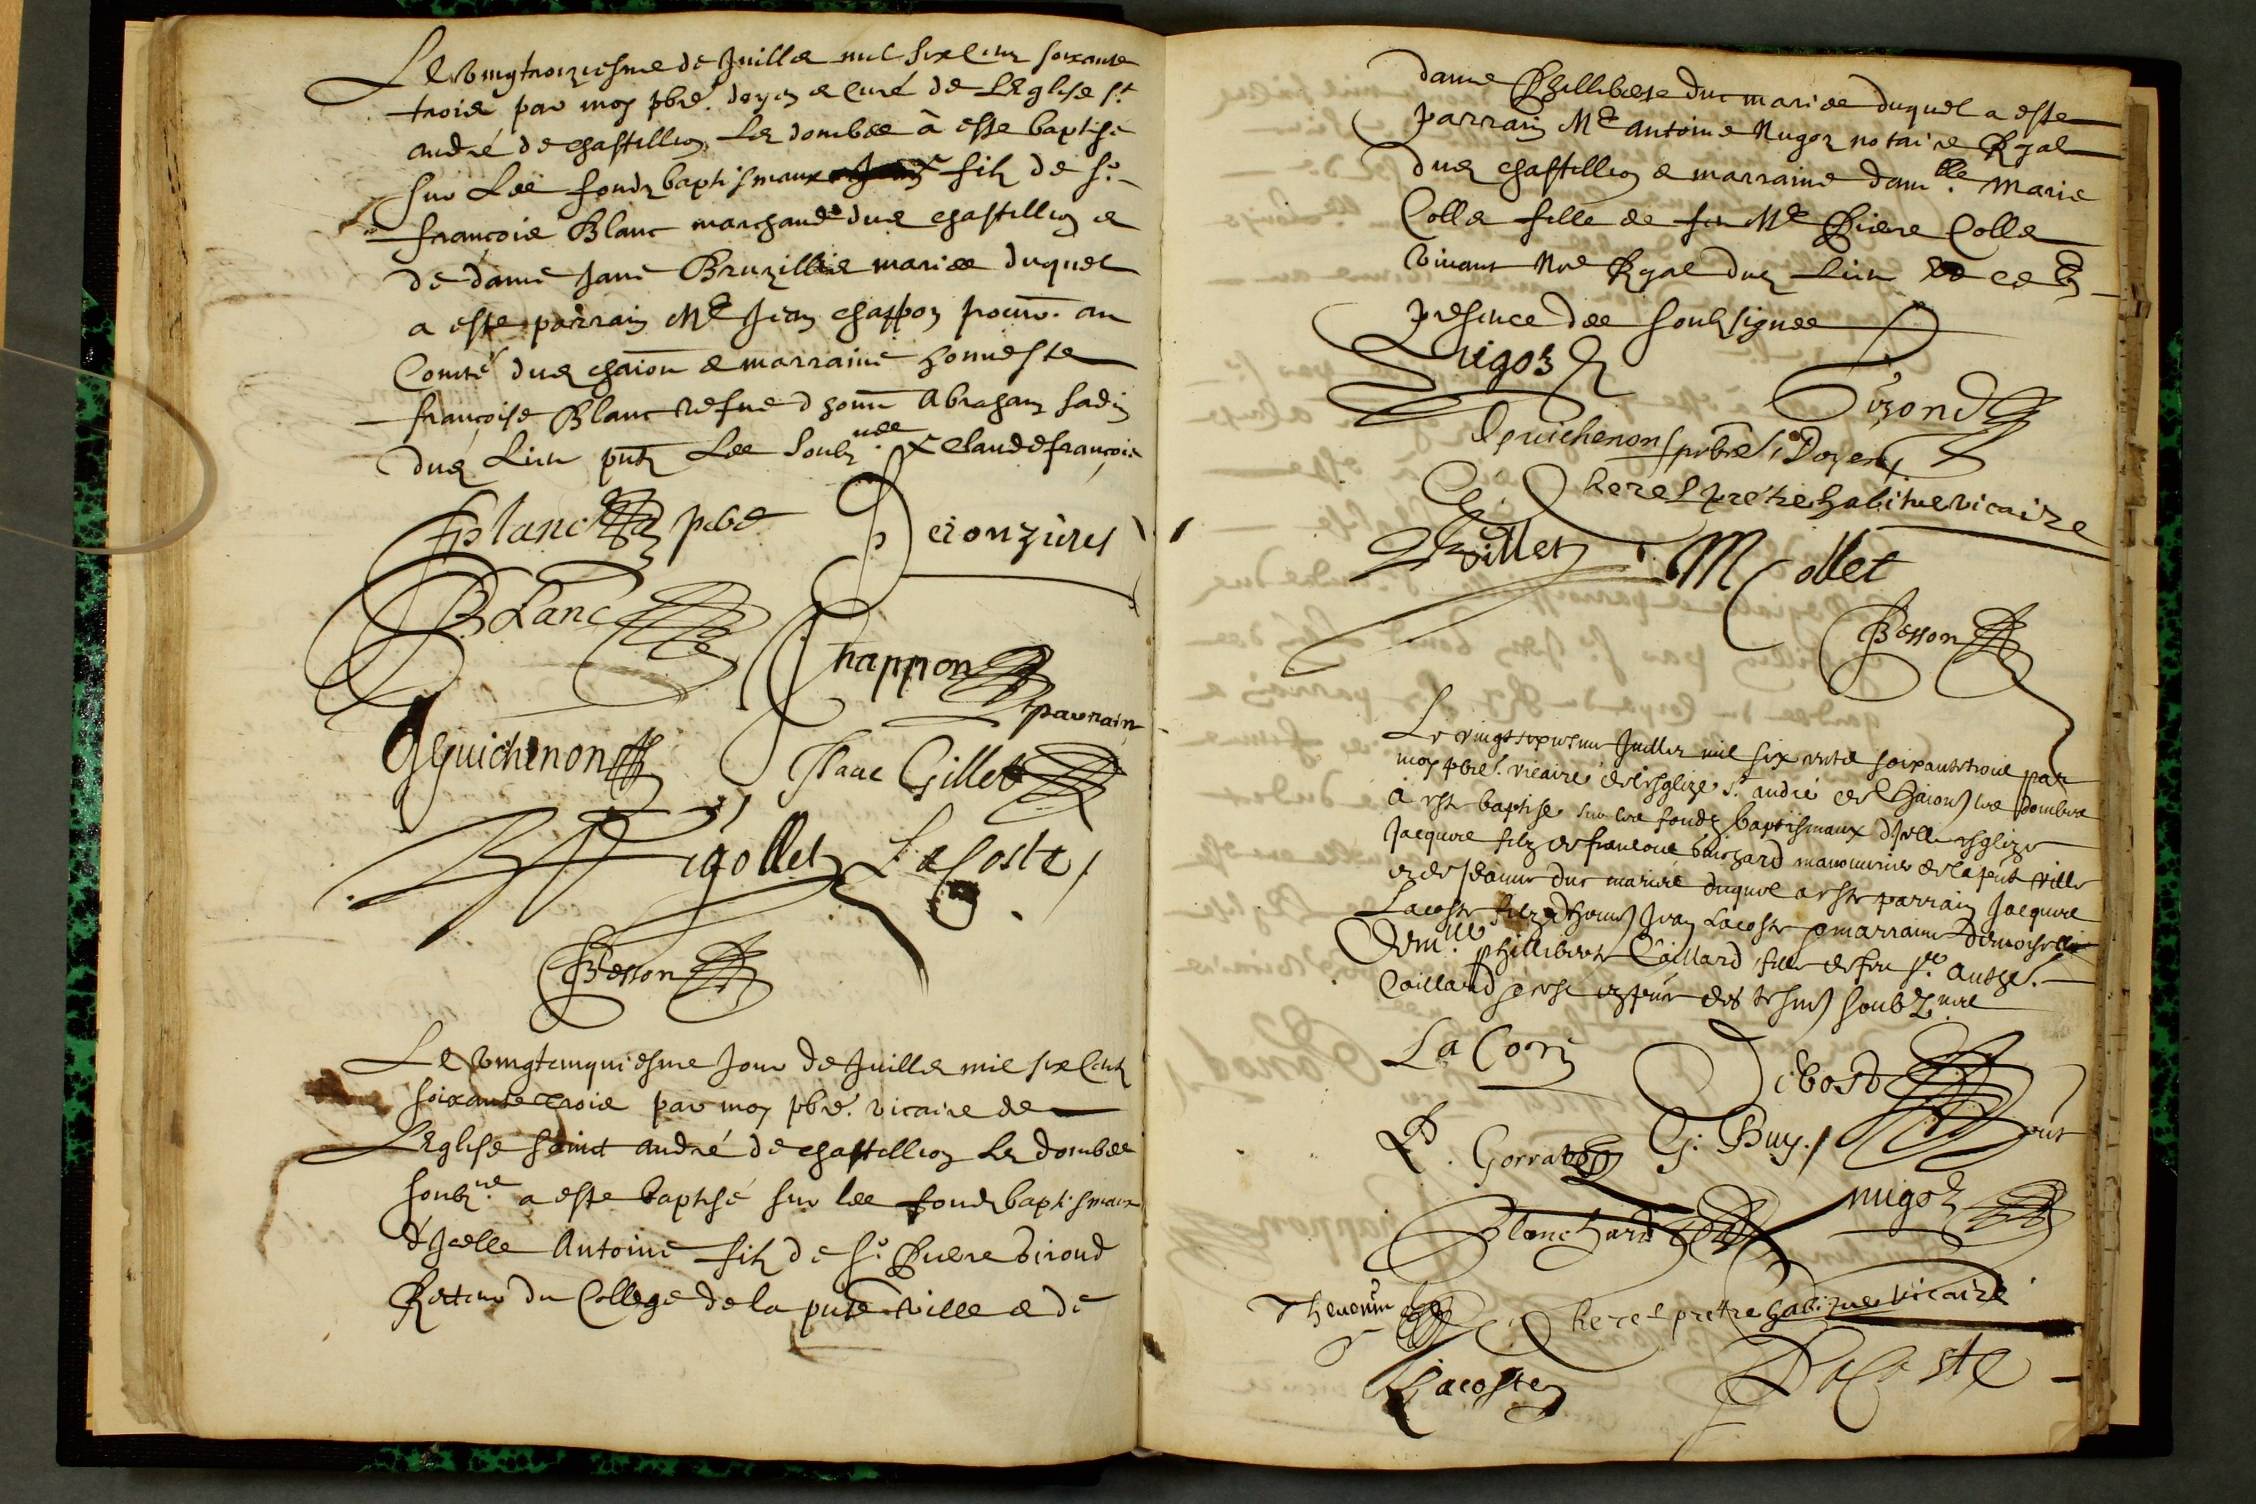 Le vingtroiziesme de Juillet mil six cent soixante
trois par moy pbre. doyen et curé de L'Eglise St
André de chastillon les dombes à esté baptisé
sur Les fondz baptismaux filz de sr.
françois Blanc marchand dud chastillon et
de dame Jane mariés duquel
a esté parrain Me Jean chappon procur. au
Comté dud chaon et marraine honneste
françoise Blanc vefve d'honn Abraham
dud Lieu pntz Les Soubznés x Claude françois
Blanc pbre Deronzieres
BLanc
Chappon parrain
Gguichenon Isaac Gillet
Rigollet LaCoste
Besson
Le vingtcinquiesme Jour de Juillet mil six cent
soixante trois par moy pbre. vicaire de
L'Eglise sainct André de chastillon les dombes
soubzné. a esté baptisé sur les fondz baptismaux
d'Icelle Antoine filz de sr. Pierre Girond
Recteur du College de la pnte Ville et de
dame Philliberte duc mariés duquel a esté
parrain Me Antoine Nugoz notaire Royal
dud chastillon et marraine damlle. Marie
Collet fille de feu Me Piere Collet
vivant Nre Royal dud Lieu et ce en
presence des soubzsignés
Nugoz Girond
Gguichenon pbre Doyen
Cherel prétre habitué vicaire
Gillet M Collet
Besson
Le vingtsixiesme Juillet mil six cents soixante trois par
moy pbre. vicaire de l'esglize St. André de Chaon les dombes
à esté baptisé sur les fondz baptismaux d'Icelle esglize
Jacques filz de francois manouvrier de la pnte Ville
et de Jeanne duc mariés duquel a esté parrain Jacques
Lacoste filz d'honn Jean Lacoste et marraine demoiselle
Demlle. Phillibert Caillard fille de feu sr. Anthe.
Caillard des tesmoins soubznés
La Coste Dibost
P. Gorraton G. Buy.
Blanchard nugoz
Thevenin Cherel prettre habitué vicaire
Lacoste DaCoste